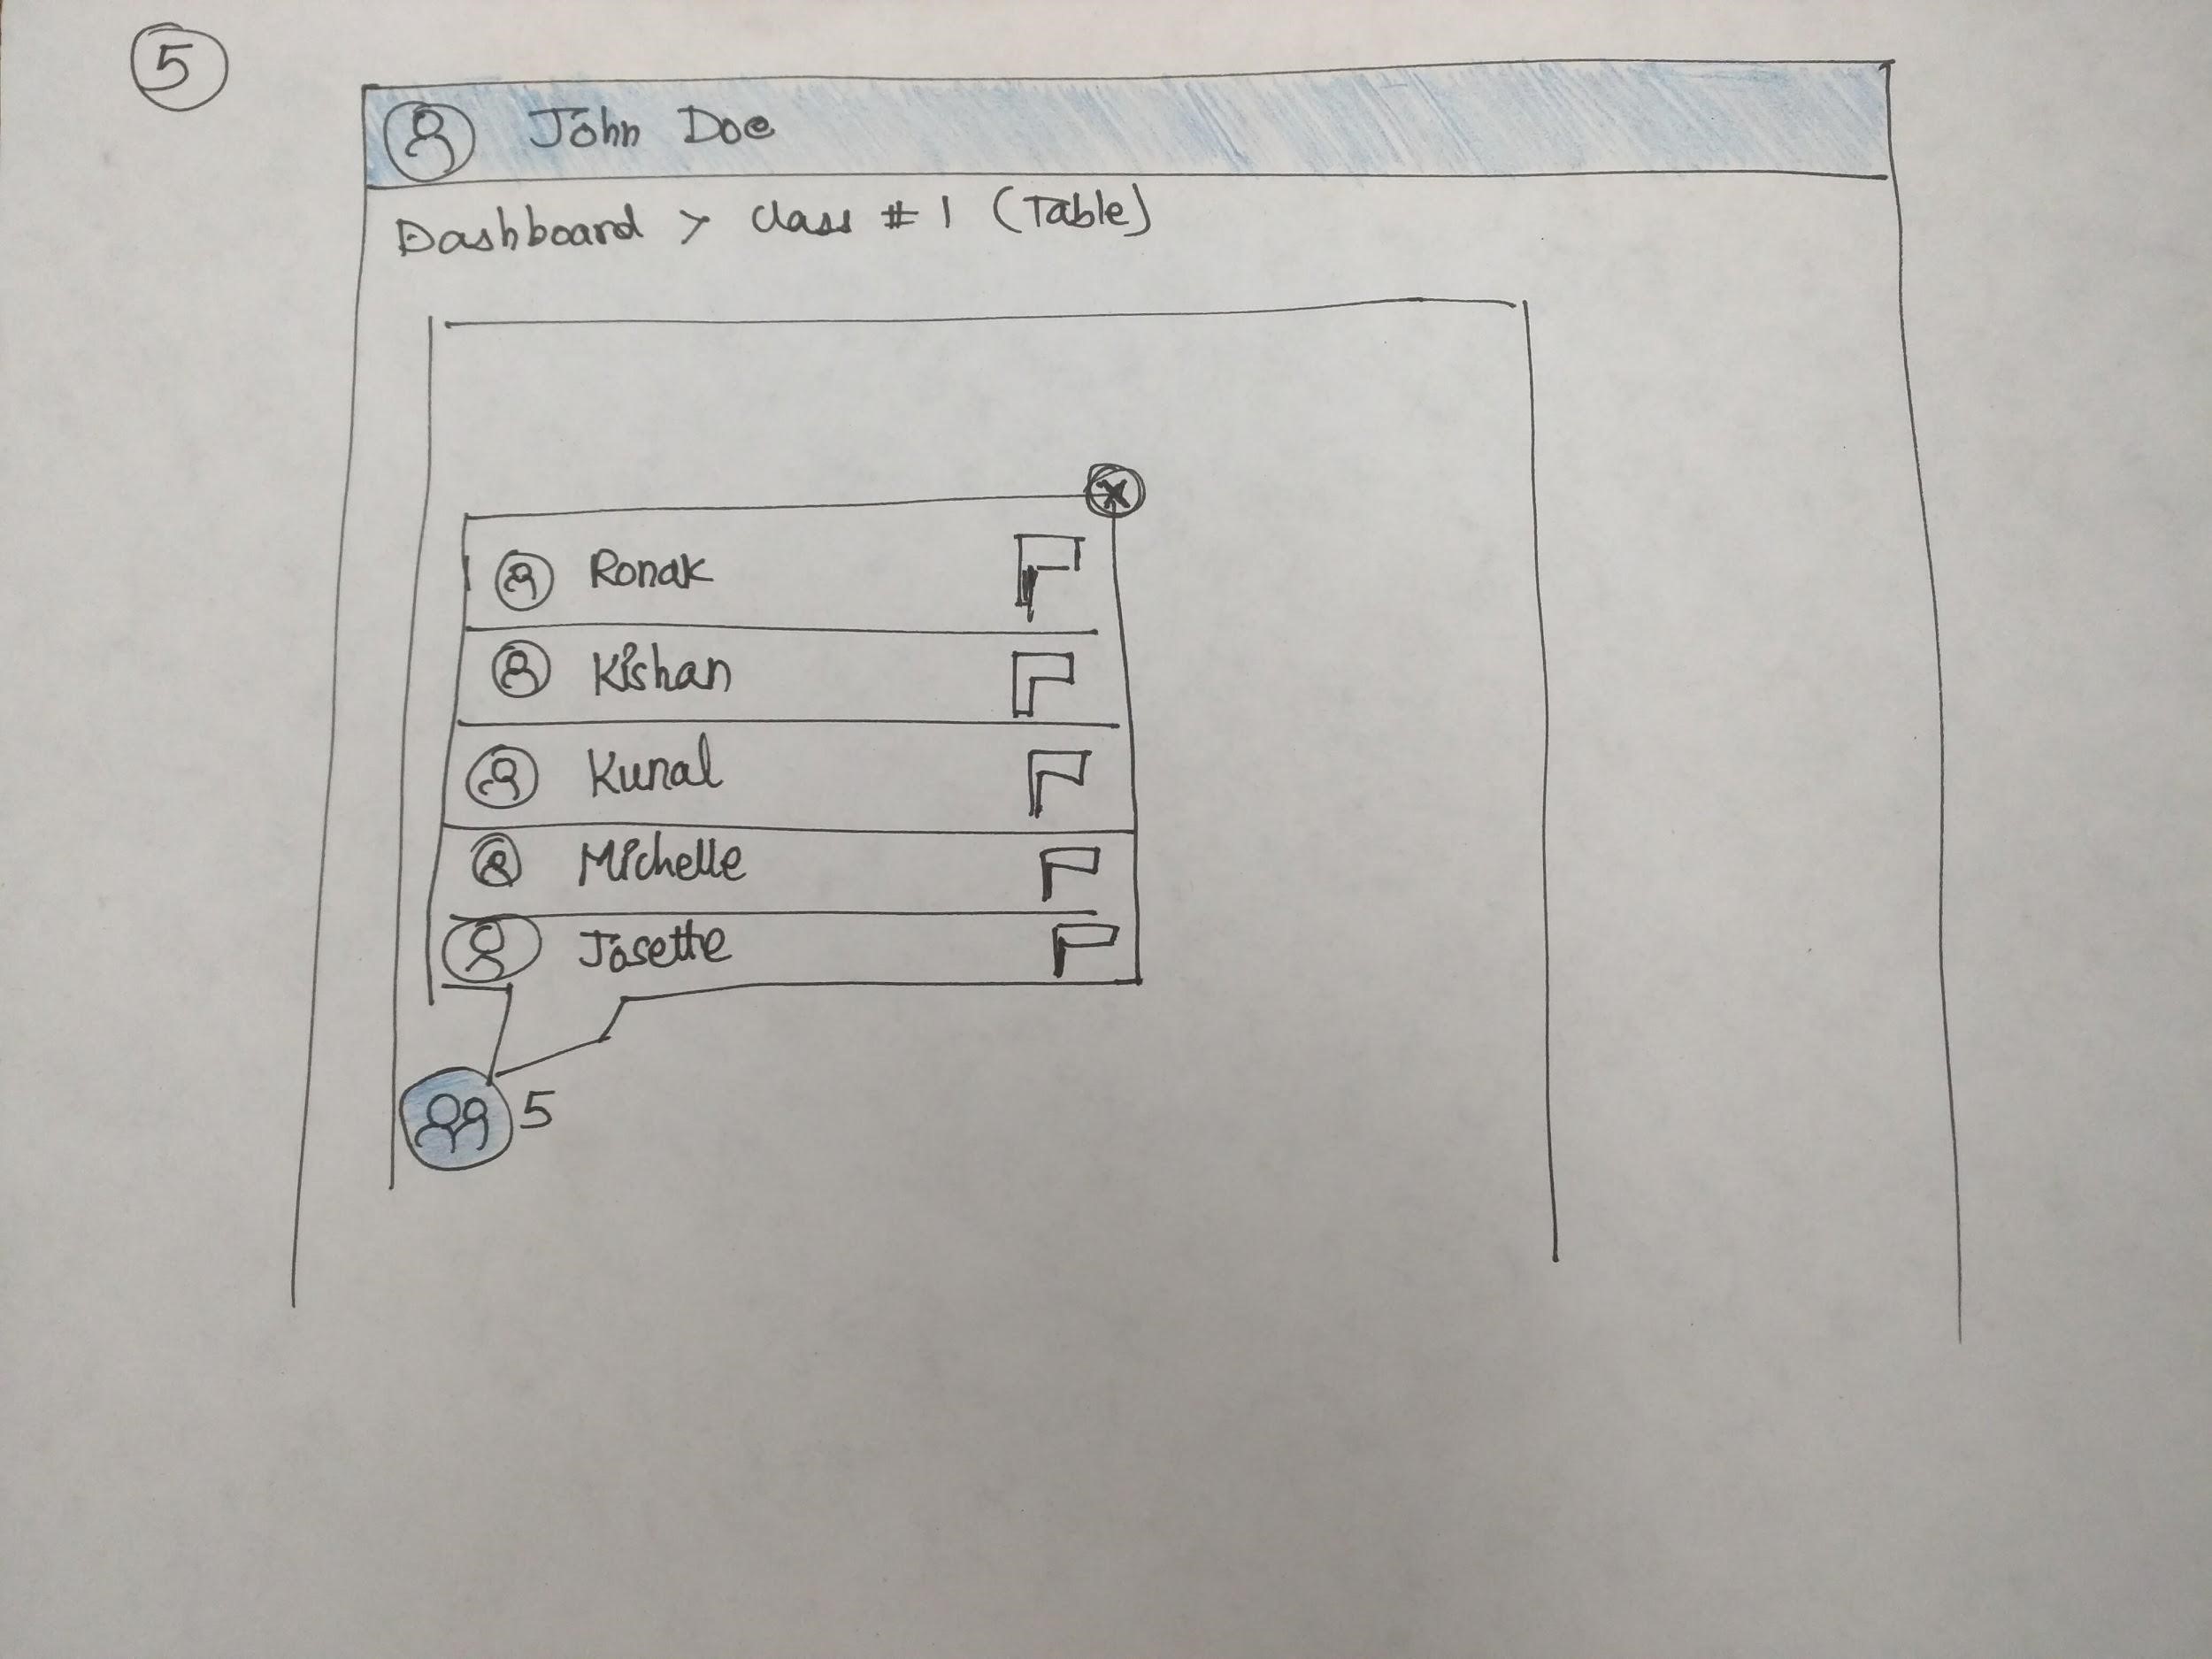 5
John Doe
Dashboard > Class # 1 (Table)
X
Ronak
Kishan
Kunal
Michelle
Josette
5